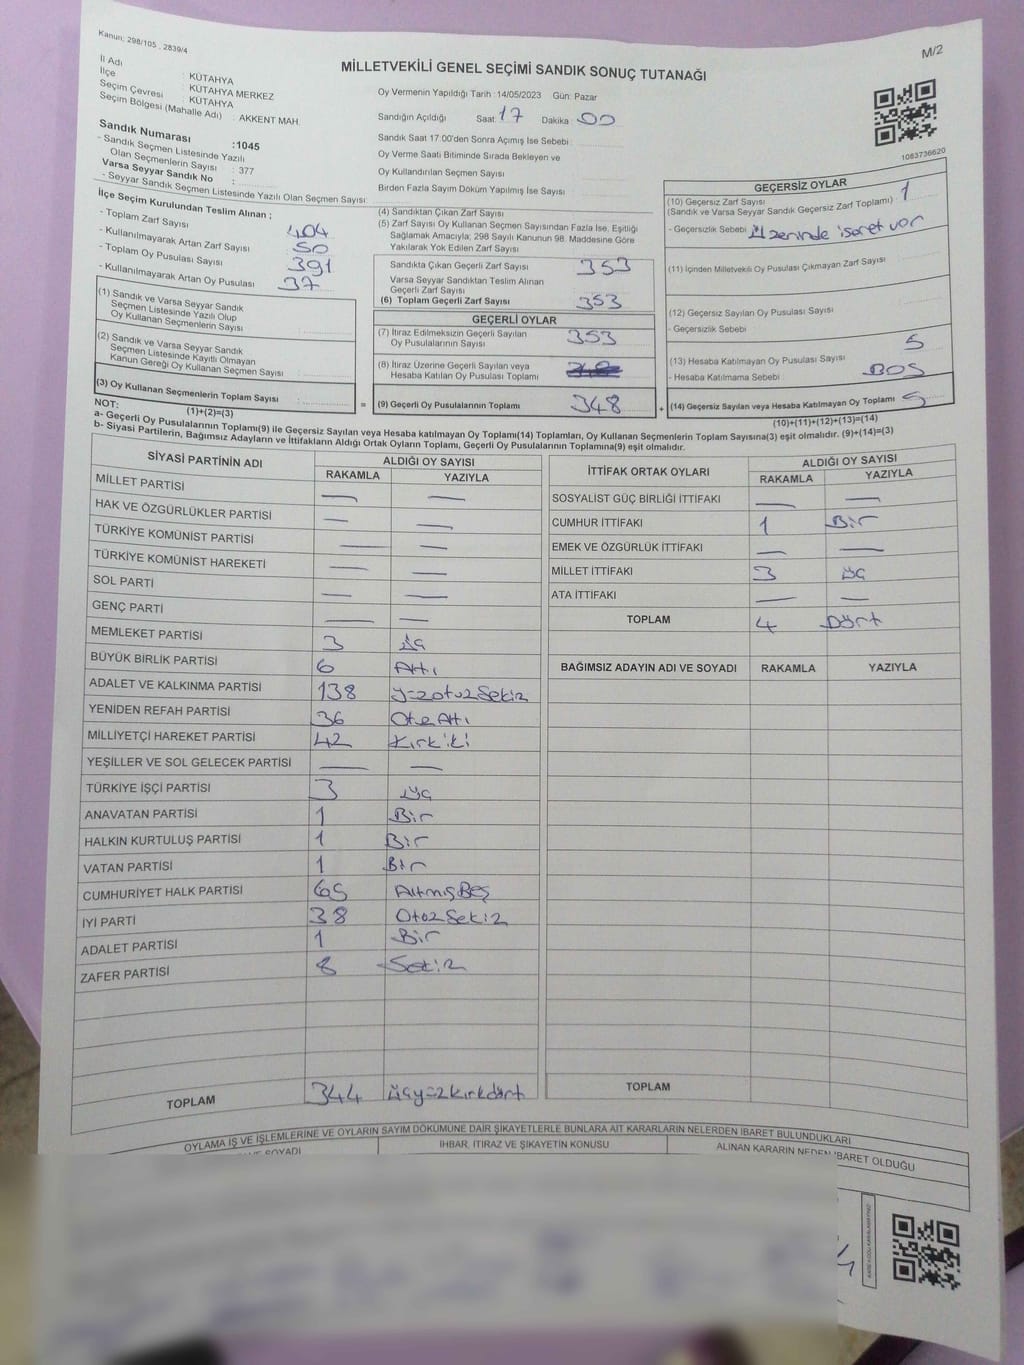 Kanun: 298/105 , 2839/4
M/2
MİLLETVEKİLİ GENEL SEÇİMİ SANDIK SONUÇ TUTANAĞI
İl Adı : KÜTAHYA
İlçe : KÜTAHYA MERKEZ
Seçim Çevresi : KÜTAHYA
Seçim Bölgesi (Mahalle Adı) : AKKENT MAH.
Sandık Numarası :1045
- Sandık Seçmen Listesinde Yazılı
Olan Seçmenlerin Sayısı : 377
Varsa Seyyar Sandık No :
- Seyyar Sandık Seçmen Listesinde Yazılı Olan Seçmen Sayısı:
Oy Vermenin Yapıldığı Tarih :14/05/2023 Gün: Pazar
Sandığın Açıldığı Saat: 17 Dakika: 00
Sandık Saat 17.00'den Sonra Açımış İse Sebebi
Oy Verme Saati Bitiminde Sırada Bekleyen ve
Oy Kullandırılan Seçmen Sayısı
Birden Fazla Sayım Döküm Yapılmış İse Sayısı
1083736620
İlçe Seçim Kurulundan Teslim Alınan ;
- Toplam Zarf Sayısı 404
- Kullanılmayarak Artan Zarf Sayısı 50
- Toplam Oy Pusulası Sayısı 391
- Kullanılmayarak Artan Oy Pusulası 37
(1) Sandık ve Varsa Seyyar Sandık
Seçmen Listesinde Yazılı Olup
Oy Kullanan Seçmenlerin Sayısı
(2) Sandık ve Varsa Seyyar Sandık
Seçmen Listesinde Kayıtlı Olmayan
Kanun Gereği Oy Kullanan Seçmen Sayısı
(3) Oy Kullanan Seçmenlerin Toplam Sayısı
(1)+(2)=(3)
(4) Sandıktan Çıkan Zarf Sayısı
(5) Zarf Sayısı Oy Kullanan Seçmen Sayısından Fazla İse, Eşitliği
Sağlamak Amacıyla; 298 Sayılı Kanunun 98. Maddesine Göre
Yakılarak Yok Edilen Zarf Sayısı
Sandıkta Çıkan Geçerli Zarf Sayısı 353
Varsa Seyyar Sandıktan Teslim Alınan
Geçerli Zarf Sayısı
(6) Toplam Geçerli Zarf Sayısı 353
GEÇERLİ OYLAR
(7) İtiraz Edilmeksizin Geçerli Sayılan
Oy Pusulalarının Sayısı 353
(8) İtiraz Üzerine Geçerli Sayılan veya
Hesaba Katılan Oy Pusulası Toplamı
= (9) Geçerli Oy Pusulalarının Toplamı 348
GEÇERSİZ OYLAR
(10) Geçersiz Zarf Sayısı 1
(Sandık ve Varsa Seyyar Sandık Geçersiz Zarf Toplamı)
- Geçersizlik Sebebi Üzerinde işaret var
(11) İçinden Milletvekili Oy Pusulası Çıkmayan Zarf Sayısı
(12) Geçersiz Sayılan Oy Pusulası Sayısı
- Geçersizlik Sebebi
(13) Hesaba Katılmayan Oy Pusulası Sayısı 5
- Hesaba Katılmama Sebebi BOŞ
+ (14) Geçersiz Sayılan veya Hesaba Katılmayan Oy Toplamı 5
(10)+(11)+(12)+(13)=(14)
NOT:
a- Geçerli Oy Pusulalarının Toplamı(9) ile Geçersiz Sayılan veya Hesaba katılmayan Oy Toplamı(14) Toplamları, Oy Kullanan Seçmenlerin Toplam Sayısına(3) eşit olmalıdır. (9)+(14)=(3)
b- Siyasi Partilerin, Bağımsız Adayların ve İttifakların Aldığı Ortak Oyların Toplamı, Geçerli Oy Pusulalarının Toplamına(9) eşit olmalıdır.
SİYASİ PARTİNİN ADI ALDIĞI OY SAYISI
RAKAMLA YAZIYLA
MİLLET PARTİSİ — —
HAK VE ÖZGÜRLÜKLER PARTİSİ — —
TÜRKİYE KOMÜNİST PARTİSİ — —
TÜRKİYE KOMÜNİST HAREKETİ — —
SOL PARTİ — —
GENÇ PARTİ — —
MEMLEKET PARTİSİ 3 üç
BÜYÜK BİRLİK PARTİSİ 6 Altı
ADALET VE KALKINMA PARTİSİ 138 yüzotuzsekiz
YENİDEN REFAH PARTİSİ 36 OtuzAltı
MİLLİYETÇİ HAREKET PARTİSİ 42 Kırkiki
YEŞİLLER VE SOL GELECEK PARTİSİ — —
TÜRKİYE İŞÇİ PARTİSİ 3 üç
ANAVATAN PARTİSİ 1 Bir
HALKIN KURTULUŞ PARTİSİ 1 Bir
VATAN PARTİSİ 1 Bir
CUMHURİYET HALK PARTİSİ 65 AltmışBeş
İYİ PARTİ 38 OtuzSekiz
ADALET PARTİSİ 1 Bir
ZAFER PARTİSİ 8 Sekiz
TOPLAM 344 üçyüzkırkdört
İTTİFAK ORTAK OYLARI ALDIĞI OY SAYISI
RAKAMLA YAZIYLA
SOSYALİST GÜÇ BİRLİĞİ İTTİFAKI — —
CUMHUR İTTİFAKI 1 Bir
EMEK VE ÖZGÜRLÜK İTTİFAKI — —
MİLLET İTTİFAKI 3 üç
ATA İTTİFAKI — —
TOPLAM 4 Dört
BAĞIMSIZ ADAYIN ADI VE SOYADI RAKAMLA YAZIYLA
TOPLAM
OYLAMA İŞ VE İŞLEMLERİNE VE OYLARIN SAYIM DÖKÜMÜNE DAİR ŞİKAYETLERLE BUNLARA AİT KARARLARIN NELERDEN İBARET BULUNDUKLARI
SOYADI İHBAR, İTİRAZ VE ŞİKAYETİN KONUSU ALINAN KARARIN NEDEN İBARET OLDUĞU